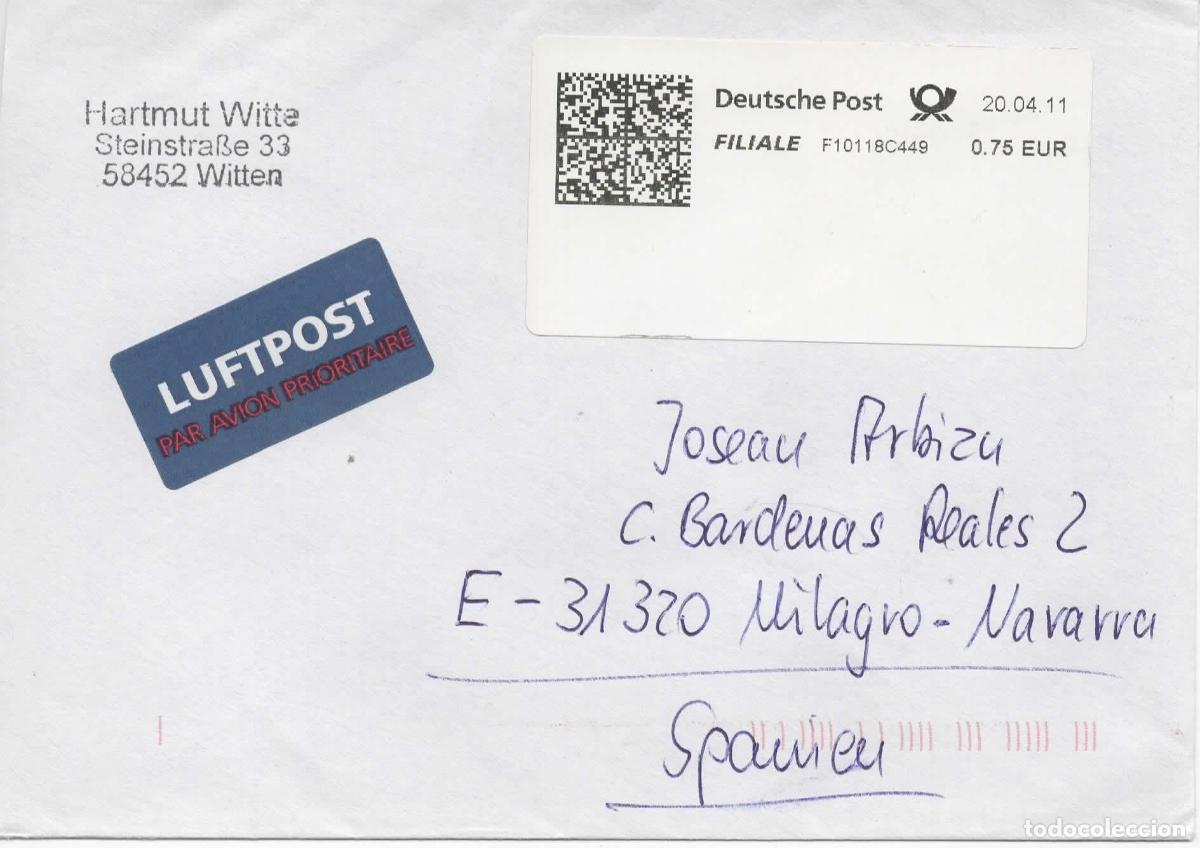 Hartmut Witte
Steinstraße 33
58452 Witten
Deutsche Post 20.04.11
FILIALE F10118C449 0.75 EUR
LUFTPOST
PAR AVION PRIORITAIRE
Josean Arbizu
C. Bardenas Reales 2
E - 31320 Milagro - Navarra
Spanien
todocoleccion